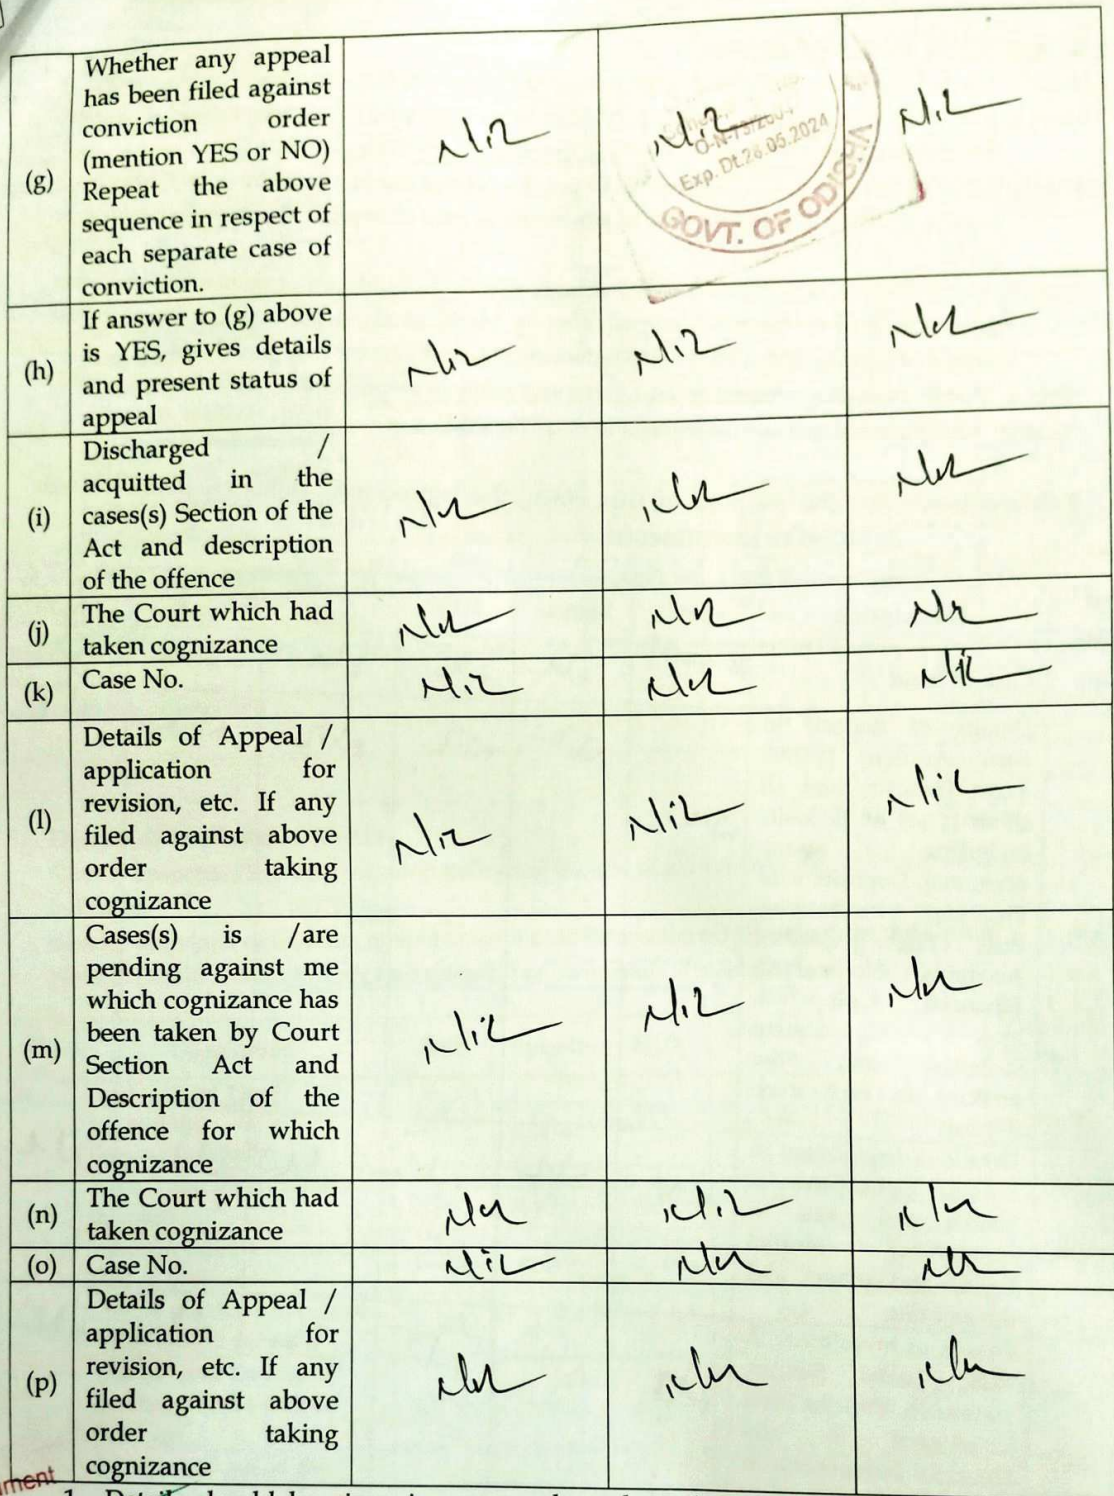 Whether any appeal
has been filed against
conviction order
(mention YES or NO)
(g) Repeat the above
sequence in respect of
each separate case of
conviction.
Nil Nil Nil
O-N-73/2004
Exp. Dt.26.05.2024
GOVT. OF ODISHA
If answer to (g) above
(h) is YES, gives details
and present status of
appeal
Nil Nil Nil
Discharged /
acquitted in the
(i) cases(s) Section of the
Act and description
of the offence
Nil Nil Nil
(j) The Court which had
taken cognizance
Nil Nil Nil
(k) Case No. Nil Nil Nil
Details of Appeal /
application for
revision, etc. If any
(l) filed against above
order taking
cognizance
Nil Nil Nil
Cases(s) is /are
pending against me
which cognizance has
been taken by Court
(m) Section Act and
Description of the
offence for which
cognizance
Nil Nil Nil
(n) The Court which had
taken cognizance
Nil Nil Nil
(o) Case No. Nil Nil Nil
Details of Appeal /
application for
revision, etc. If any
(p) filed against above
order taking
cognizance
Nil Nil Nil